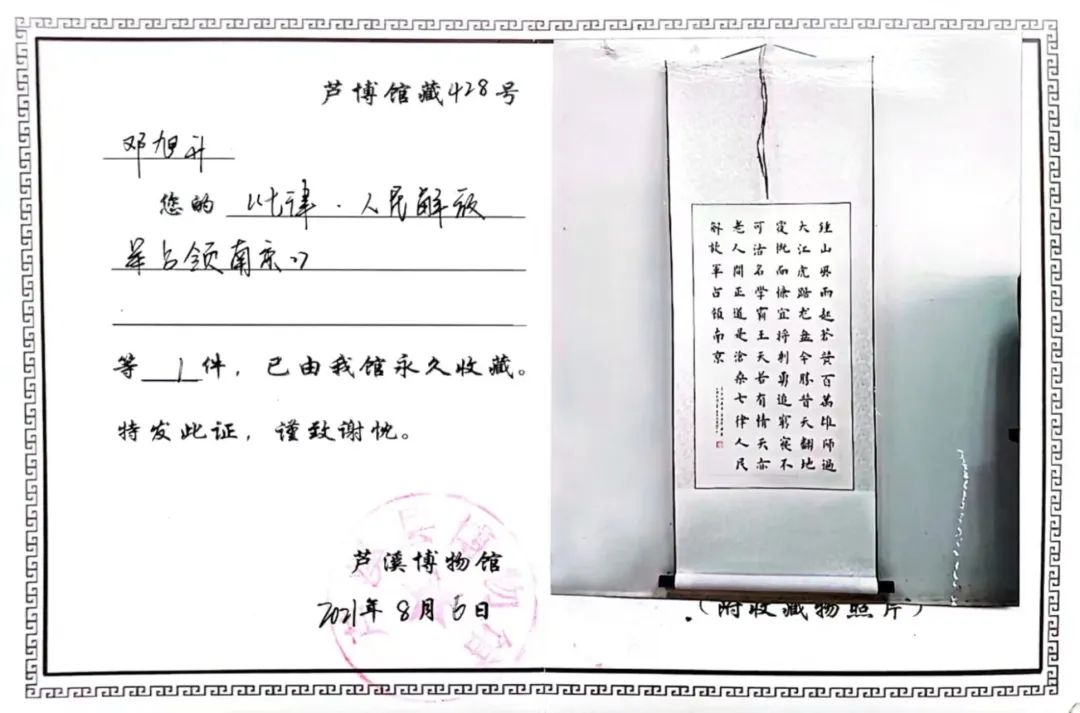 芦博馆藏428号
邓旭升
您的《七律·人民解放
军占领南京》
等1件，已由我馆永久收藏。
特发此证，谨致谢忱。
芦溪博物馆
2021年8月6日
鍾山風雨起苍黄百萬雄师過
大江虎踞龙盘今胜昔天翻地
覆慨而慷宜将剩勇追窮寇不
可沽名学霸王天若有情天亦
老人间正道是沧桑七律人民
解放军占领南京
（附收藏物照片）